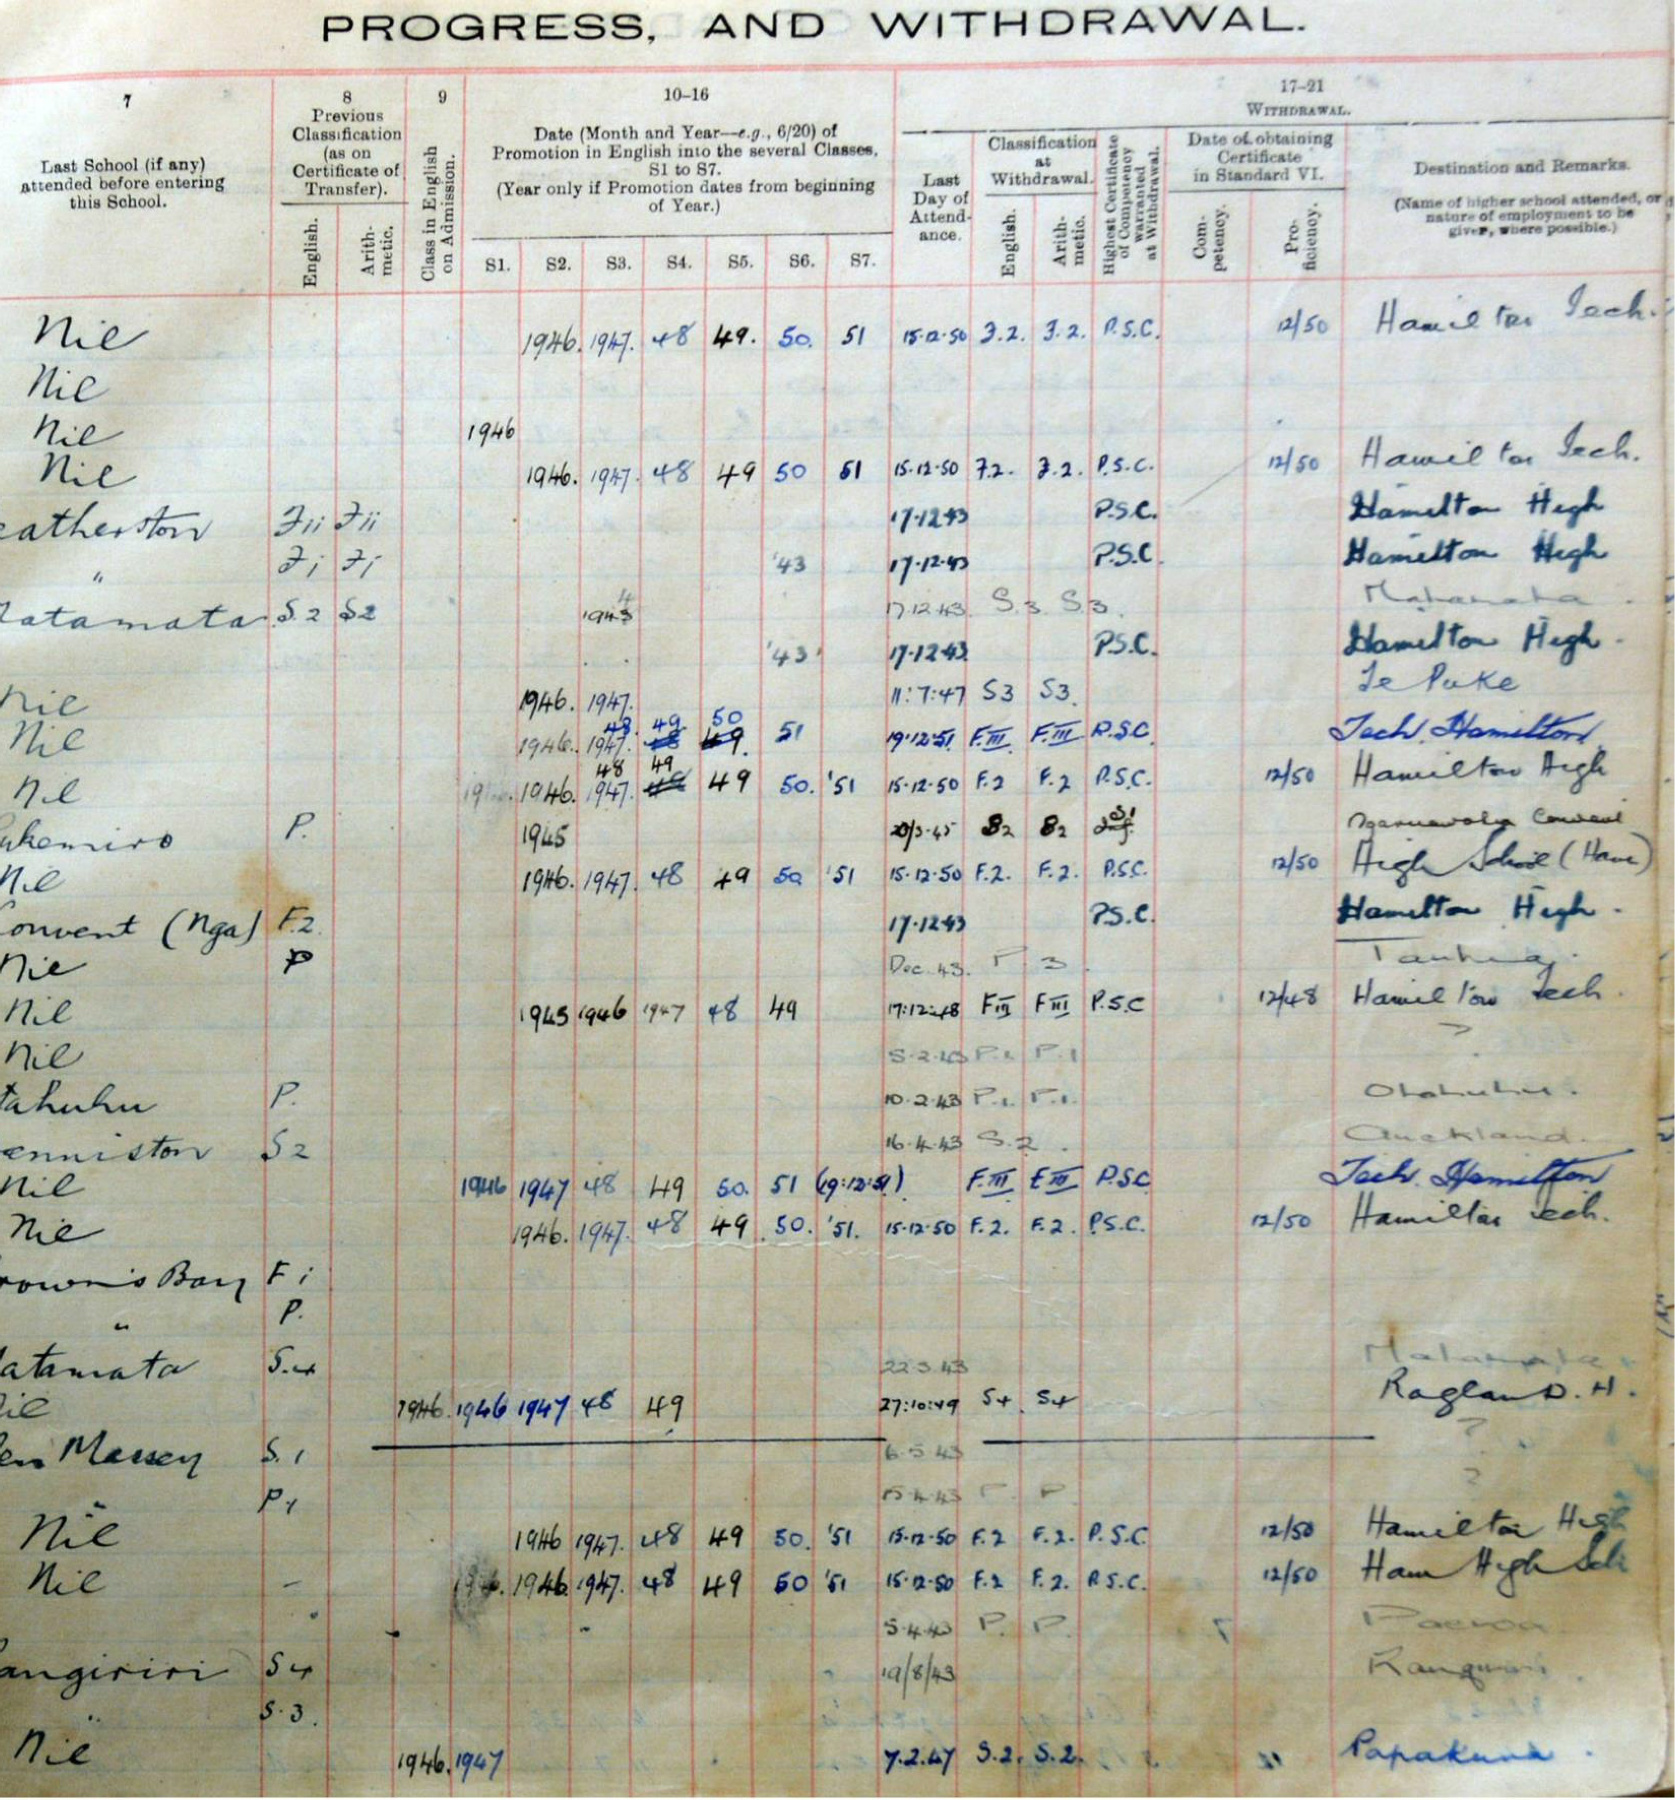 PROGRESS, AND WITHDRAWAL.
7
Last School (if any)
attended before entering
this School.
8
Previous
Classification
(as on
Certificate of
Transfer).
English.
Arith-
metic.
9
Class in English
on Admission.
10–16
Date (Month and Year—e.g., 6/20) of
Promotion in English into the several Classes,
S1 to S7.
(Year only if Promotion dates from beginning
of Year.)
S1. S2. S3. S4. S5. S6. S7.
17–21
WITHDRAWAL.
Last
Day of
Attend-
ance.
Classification
at
Withdrawal.
English.
Arith-
metic.
Highest Certificate
of Competency
warranted
at Withdrawal.
Date of obtaining
Certificate
in Standard VI.
Com-
petency.
Pro-
ficiency.
Destination and Remarks.
(Name of higher school attended, or
nature of employment to be
given, where possible.)
Nil 1946. 1947. 48 49. 50. 51 15.12.50 F.2. F.2. P.S.C. 12/50 Hamilton Tech.
Nil
Nil 1946
Nil 1946. 1947. 48 49 50 51 15.12.50 F.2. F.2. P.S.C. 12/50 Hamilton Tech.
eatherston Fii Fii 17.12.43 P.S.C. Hamilton High
" Fi Fi '43 17.12.43 P.S.C. Hamilton High
atamata S.2 S2 1943 17.12.43. S.3. S.3. Matamata
'43 17.12.43 P.S.C. Hamilton High.
Nil 1946. 1947. 11:7:47 S3 S3. Te Puke
48 49 50
Nil 1946. 1947. 48 49. 51 19:12:51 F.III F.III P.S.C. Tech. Hamilton
48 49
Nil 1946. 1947. 48 49 50. '51 15.12.50 F.2 F.2 P.S.C. 12/50 Hamilton High
ukemiro P. 1945 20/3.45 Convent
Nil 1946. 1947. 48 49 50 '51 15.12.50 F.2. F.2. P.S.C. 12/50 High School (Ham)
onvent (Nga) F.2. 17.12.43 P.S.C. Hamilton High.
Nil P Dec. 43. P 3
Nil 1945 1946 1947 48 49 17:12:48 FIII FIII P.S.C 12/48 Hamilton Tech.
Nil 5.2.43 P.1 P.1 ?
tahuhu P. 10.2.43 P.1. P.1. Otahuhu.
enniston S2 16.4.43 S.2. Auckland.
Nil 1946 1947 48 49 50. 51 (19:12:51) F.III F.III P.S.C Tech. Hamilton
Nil 1946. 1947. 48 49 50. '51. 15.12.50 F.2. F.2. P.S.C. 12/50 Hamilton Tech.
rown's Bay Fi
" P.
atamata S.4 22.3.43 Matamata.
il 1946. 1946 1947 48 49 27:10:49 S4 S4 Raglan D.H.
en Massey S.1 6.5.43 ?
" P1 15.4.43 P. P. ?
Nil 1946 1947. 48 49 50. '51 15.12.50 F.2 F.2. P.S.C. 12/50 Hamilton High
Nil – 1946. 1947. 48 49 50 '51 15.12.50 F.2 F.2. P.S.C. 12/50 Ham High Sch
5.4.43 P. P. Paeroa
angiriri S4 19/8/43 Rangiriri.
" S.3.
Nil 1946. 1947 7.2.47 S.2. S.2. Papakura.